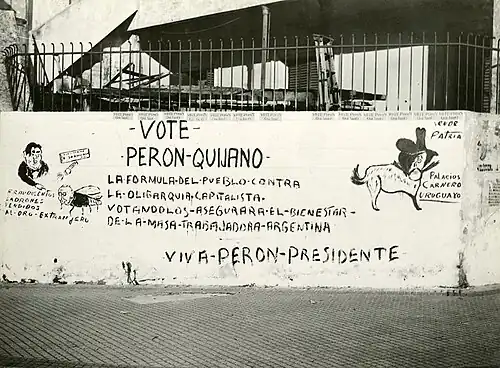 -VOTE-
-PERON-QUIJANO-
LA-FORMULA-DEL-PUEBLO-CONTRA
LA-OLIGARQUIA-CAPITALISTA.
VOTANDOLOS-ASEGURARA-EL-BIENESTAR-
DE-LA-MASA-TRABAJADORA-ARGENTINA
VIVA-PERON-PRESIDENTE
LADRONES
VENDIDOS
AL-ORO-EXTRANJERO
PATRIA
PALACIOS
CARNERO
URUGUAYO